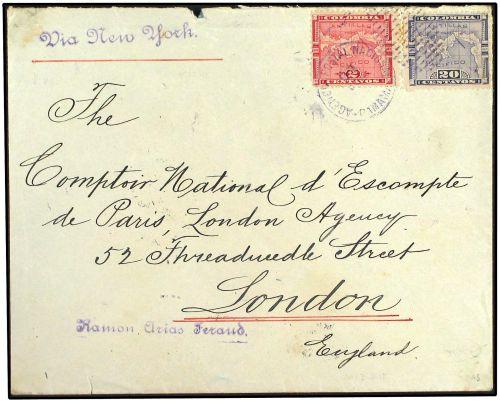 Via New York.
COLOMBIA COLOMBIA
2 20
CENTAVOS CENTAVOS
The
Comptoir National d'Escompte
de Paris, London Agency
52 Threadneedle Street
London
Ramon Arias Feraud.
England.